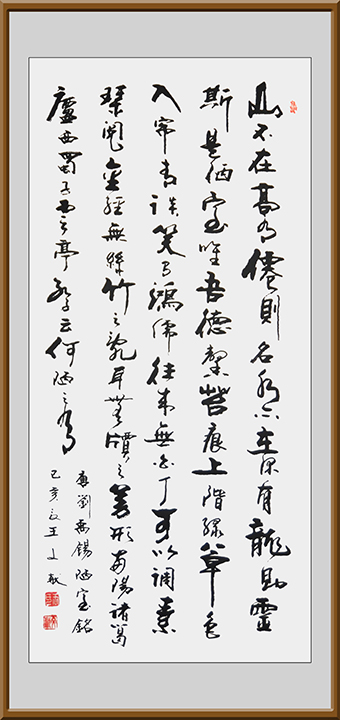 山不在高有僊則名水不在深有龍則靈
斯是陋室唯吾德馨苔痕上階綠草色
入簾青談笑有鴻儒往來無白丁可以調素
琴閱金經無絲竹之亂耳無牘之勞形南陽諸葛
廬西蜀子雲亭孔子云何陋之有
唐劉禹錫陋室銘
己亥王敏